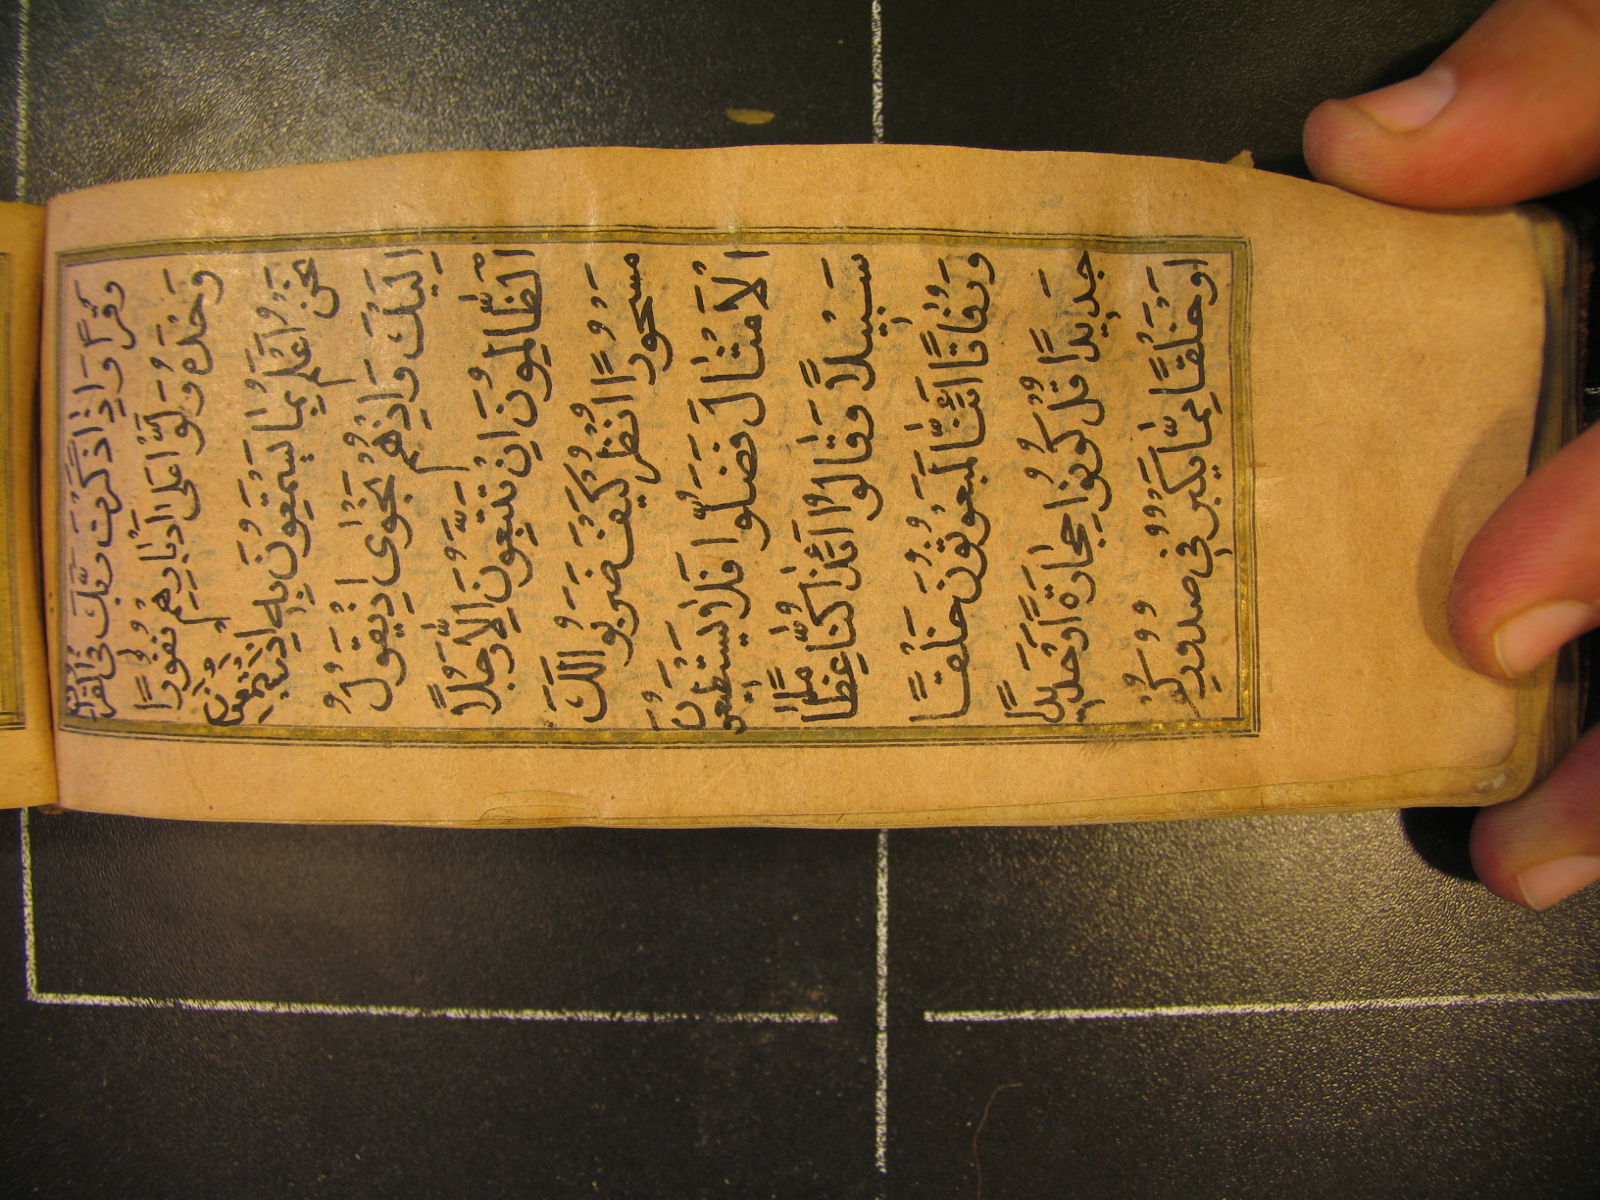 وَقْرًا وَاِذَا ذَكَرْتَ رَبَّكَ فِى الْقُرْاٰنِ
وَحْدَهُ وَلَّوْا عَلٰى اَدْبَارِهِمْ نُفُورًا
نَحْنُ اَعْلَمُ بِمَا يَسْتَمِعُونَ بِهِ اِذْ يَسْتَمِعُونَ
اِلَيْكَ وَاِذْ هُمْ نَجْوٰى اِذْ يَقُولُ
الظَّالِمُونَ اِنْ تَتَّبِعُونَ اِلَّا رَجُلًا
مَسْحُورًا اُنْظُرْ كَيْفَ ضَرَبُوا لَكَ
الْاَمْثَالَ فَضَلُّوا فَلَا يَسْتَطِيعُونَ
سَبِيلًا وَقَالُوا ءَاِذَا كُنَّا عِظَامًا
وَرُفَاتًا ءَاِنَّا لَمَبْعُوثُونَ خَلْقًا
جَدِيدًا قُلْ كُونُوا حِجَارَةً اَوْ حَدِيدًا
اَوْ خَلْقًا مِمَّا يَكْبُرُ فِى صُدُورِكُمْ